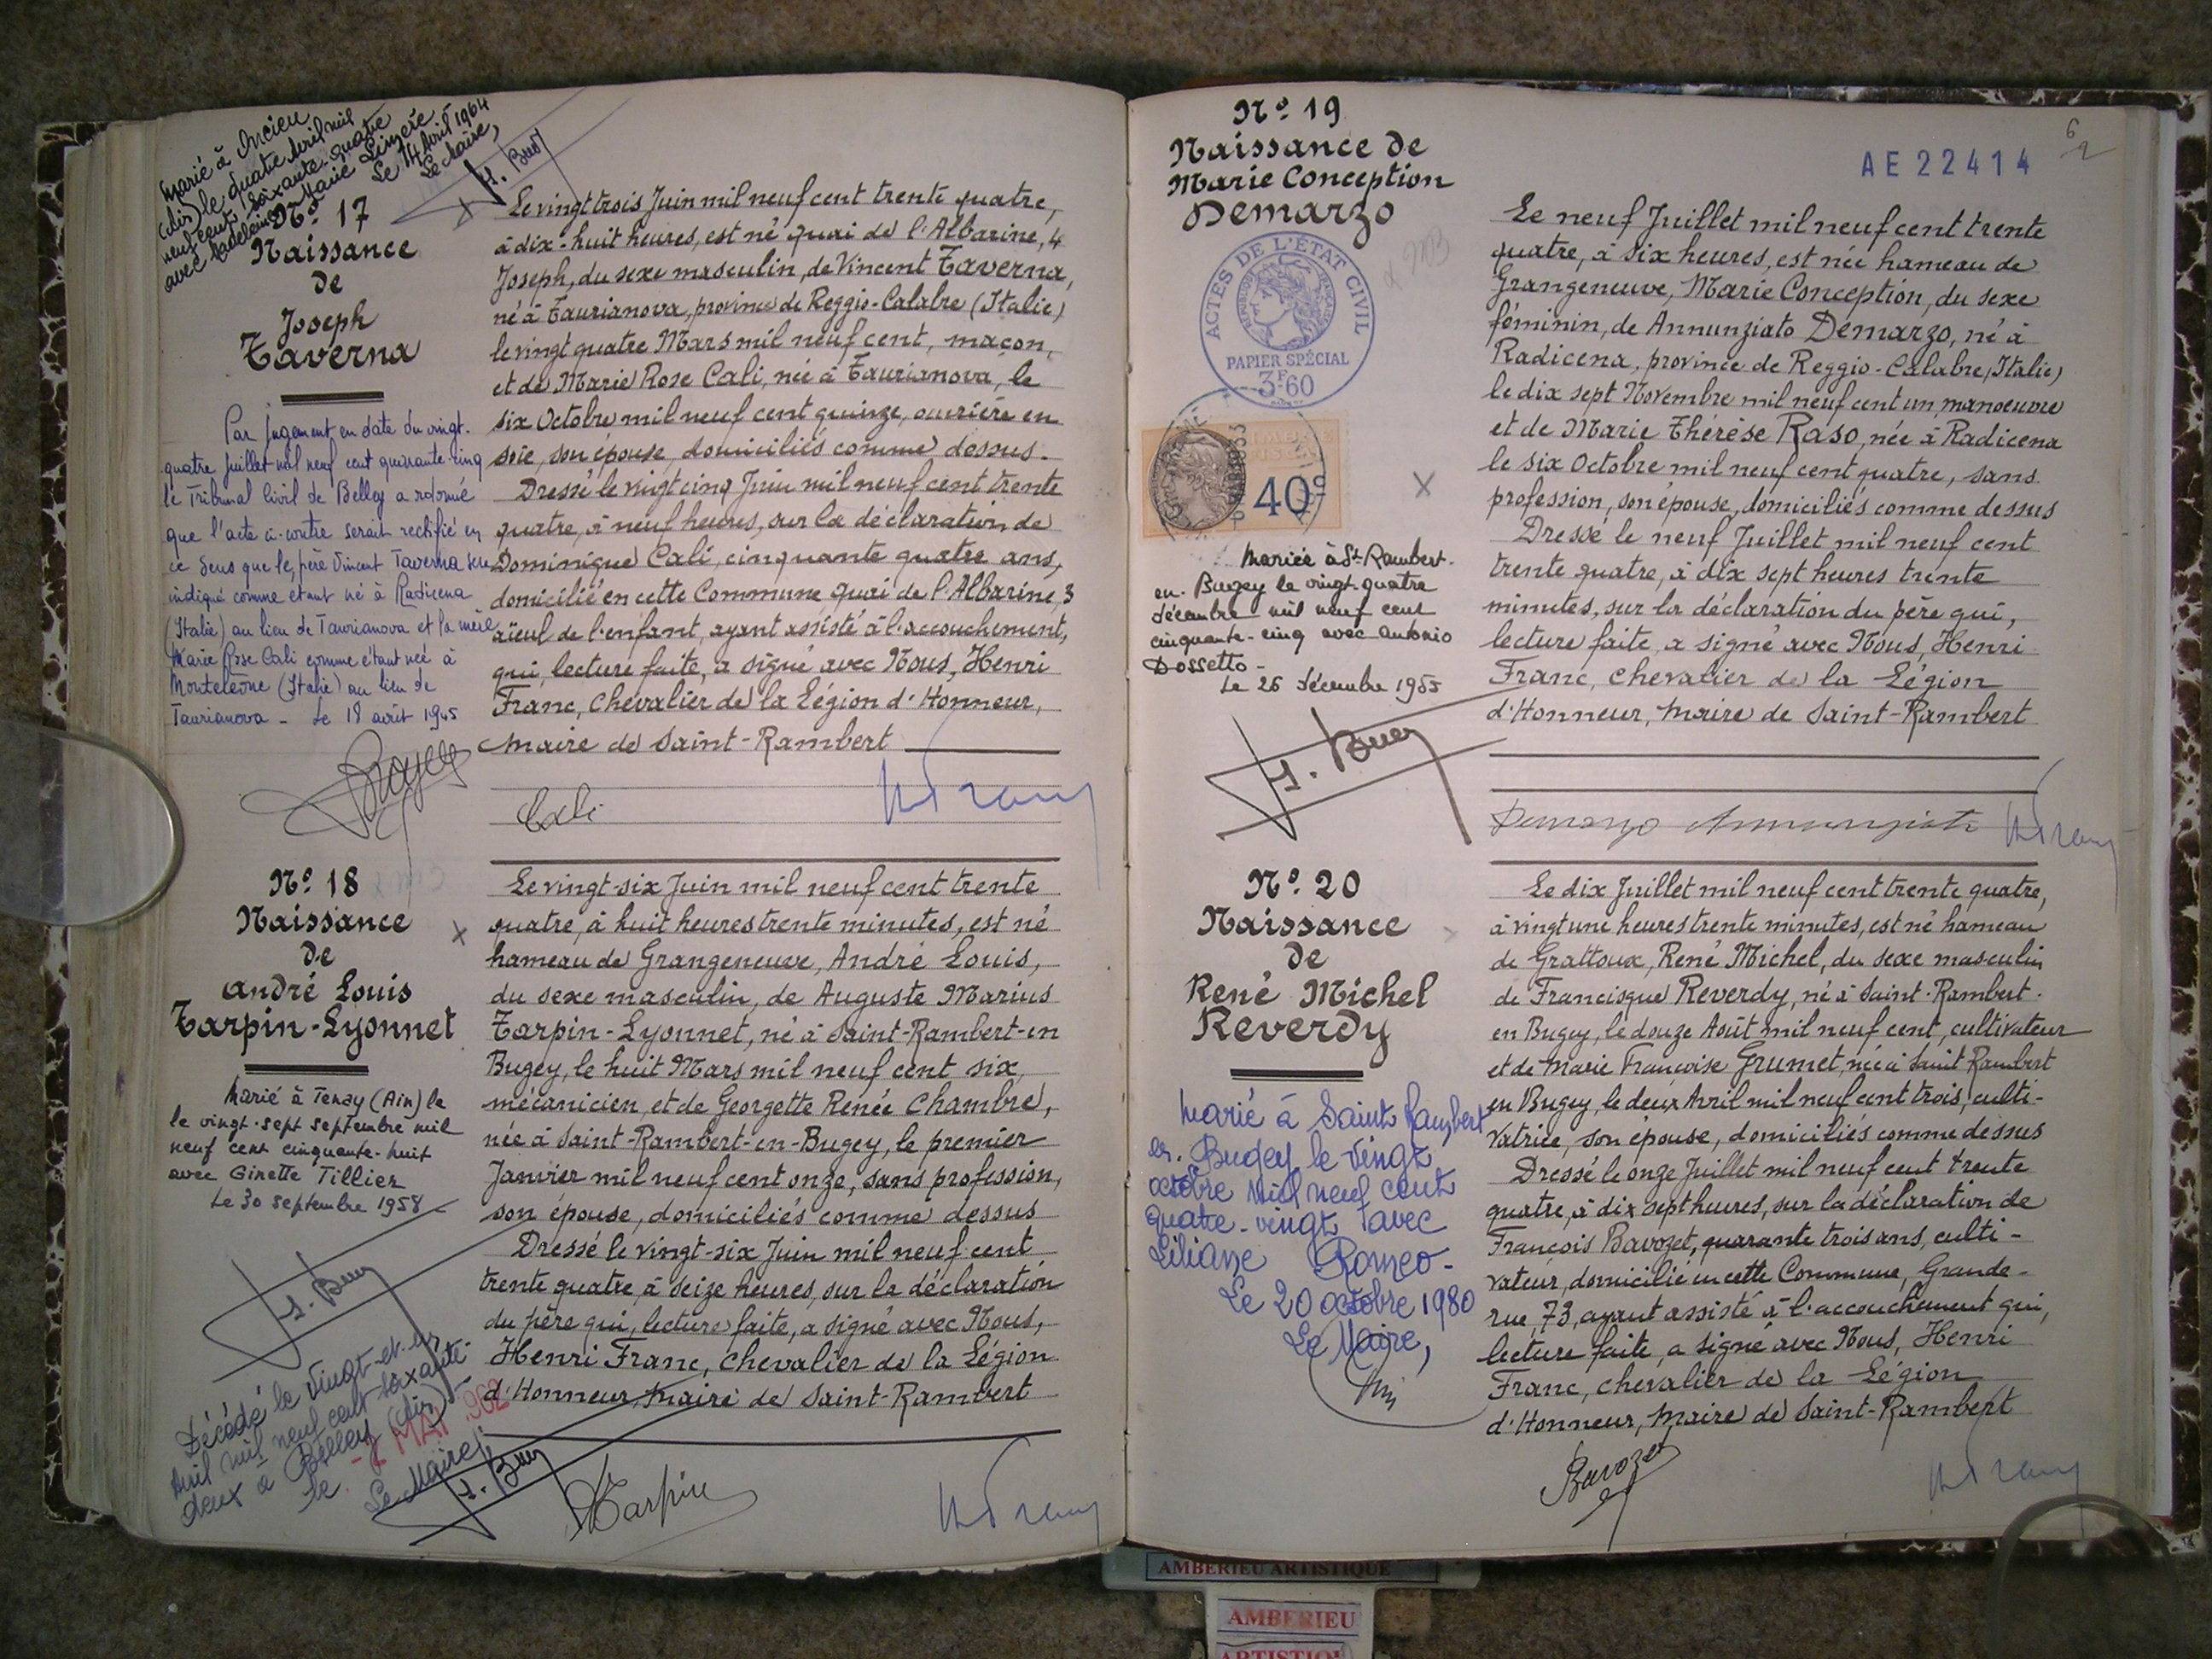 Marié à Oncieu
(Ain) le quatre Avril mil
neuf cent soixante-quatre
avec Madeleine Marie Lingere
Le 14 Avril 1964
Le Maire,
J. Buy
N° 17
Naissance
de
Joseph
Taverna
Par jugement en date du vingt-
quatre juillet mil neuf cent quarante-cinq
le Tribunal Civil de Belley a ordonné
que l'acte ci-contre serait rectifié en
ce sens que le père Vincent Taverna sera
indiqué comme étant né à Radicena
(Italie) au lieu de Taurianova et la mère
Marie Rose Cali comme étant née à
Monteleone (Italie) au lieu de
Taurianova - Le 18 août 1945
Le vingt trois Juin mil neuf cent trente quatre,
à dix-huit heures, est né quai de l'Albarine, 4
Joseph, du sexe masculin, de Vincent Taverna,
né à Taurianova, province de Reggio-Calabre (Italie)
le vingt quatre Mars mil neuf cent, maçon,
et de Marie Rose Cali, née à Taurianova, le
six Octobre mil neuf cent quinze, ouvrière en
soie, son épouse, domiciliés comme dessus.
Dressé le vingt cinq Juin mil neuf cent trente
quatre, à neuf heures, sur la déclaration de
Dominique Cali, cinquante quatre ans,
domicilié en cette Commune, quai de l'Albarine, 3
aïeul de l'enfant, ayant assisté à l'accouchement,
qui, lecture faite, a signé avec Nous, Henri
Franc, Chevalier de la Légion d'Honneur,
Maire de Saint-Rambert
Cali
N° 18
Naissance
de
André Louis
Tarpin-Lyonnet
Marié à Tenay (Ain) le
le vingt-sept septembre mil
neuf cent cinquante-huit
avec Ginette Tillier
Le 30 septembre 1958
J. Buy
Décédé le vingt-et-un
Avril mil neuf cent soixante-
deux à Belley (Ain)
le - 2 MAI 1962
Le Maire,
J. Buy
Le vingt-six Juin mil neuf cent trente
quatre, à huit heures trente minutes, est né
hameau de Grangeneuve, André Louis,
du sexe masculin, de Auguste Marius
Tarpin-Lyonnet, né à Saint-Rambert-en
Bugey, le huit Mars mil neuf cent six,
mécanicien, et de Georgette Renée Chambre,
née à Saint-Rambert-en-Bugey, le premier
Janvier mil neuf cent onze, sans profession,
son épouse, domiciliés comme dessus
Dressé le vingt-six Juin mil neuf cent
trente quatre, à seize heures, sur la déclaration
du père qui, lecture faite, a signé avec Nous,
Henri Franc, Chevalier de la Légion
d'Honneur, Maire de Saint-Rambert
Tarpin
N° 19
Naissance de
Marie Conception
Demarzo
ACTES DE L'ÉTAT CIVIL
PAPIER SPÉCIAL
3F60
40c
Mariée à St-Rambert-
en-Bugey le vingt-quatre
décembre mil neuf cent
cinquante-cinq avec Antonio
Dossetto -
Le 26 décembre 1955
J. Buy
6
2
AE 22414
Le neuf Juillet mil neuf cent trente
quatre, à six heures, est née hameau de
Grangeneuve, Marie Conception, du sexe
féminin, de Annunziato Demarzo, né à
Radicena, province de Reggio-Calabre (Italie)
le dix sept Novembre mil neuf cent un, manoeuvre
et de Marie Thérèse Raso, née à Radicena
le six Octobre mil neuf cent quatre, sans
profession, son épouse, domiciliés comme dessus
Dressé le neuf Juillet mil neuf cent
trente quatre, à dix sept heures trente
minutes, sur la déclaration du père qui,
lecture faite, a signé avec Nous, Henri
Franc, Chevalier de la Légion
d'Honneur, Maire de Saint-Rambert
Demarzo Annunziato
N° 20
Naissance
de
René Michel
Reverdy
Marié à Saint Rambert
en-Bugey le vingt
octobre mil neuf cent
quatre-vingt avec
Liliane Romeo-
Le 20 octobre 1980
Le Maire,
Le dix Juillet mil neuf cent trente quatre,
à vingt une heures trente minutes, est né hameau
de Grattoux, René Michel, du sexe masculin
de Francisque Reverdy, né à Saint-Rambert-
en Bugey, le douze Août mil neuf cent, cultivateur
et de Marie Françoise Grumet, née à Saint Rambert
en Bugey, le deux Avril mil neuf cent trois, culti-
vatrice, son épouse, domiciliés comme dessus
Dressé le onze Juillet mil neuf cent trente
quatre, à dix sept heures, sur la déclaration de
François Bavozet, quarante trois ans, culti-
vateur, domicilié en cette Commune, Grande-
rue, 73, ayant assisté à l'accouchement qui,
lecture faite, a signé avec Nous, Henri
Franc, Chevalier de la Légion
d'Honneur, Maire de Saint-Rambert
Bavozet
AMBERIEU ARTISTIQUE
AMBERIEU
ARTISTIQUE